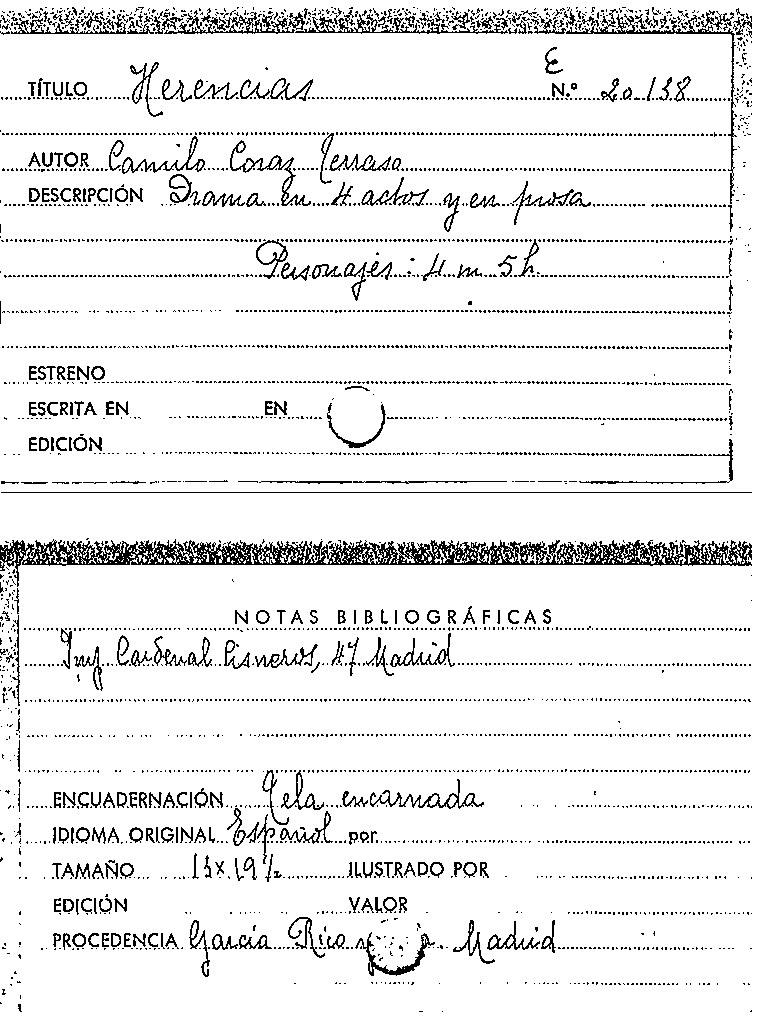 E
TÍTULO Herencias N.º 20.138
AUTOR Camilo
DESCRIPCIÓN Drama en 4 actos y en prosa
Personajes: 4 m 5 h.
ESTRENO
ESCRITA EN EN
EDICIÓN
NOTAS BIBLIOGRÁFICAS
Imp. Cardenal Cisneros, 47 Madrid
ENCUADERNACIÓN Tela encarnada
IDIOMA ORIGINAL Español por
TAMAÑO 13 x 19 1/2 ILUSTRADO POR
EDICIÓN VALOR
PROCEDENCIA García Rico y Madrid